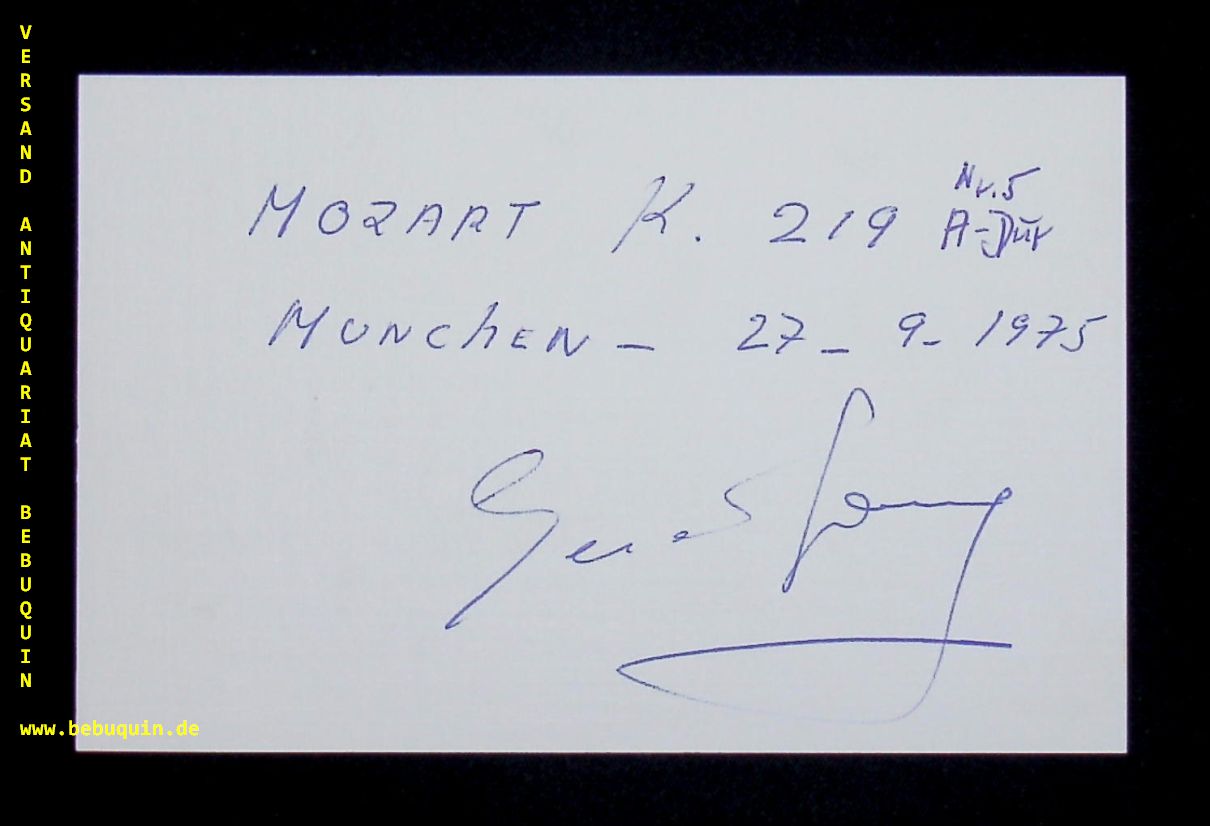 VERSAND ANTIQUARIAT BEBUQUIN
www.bebuquin.de
MOZART K. 219 Nr. 5
A-Dur
MUNCHEN - 27 - 9 - 1975